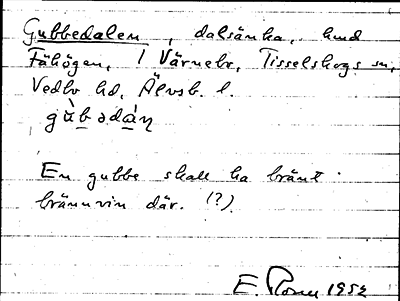 Gubbedalen, dalsänka, hmd
Fähögen, / Värnebr, Tisselskogs sn,
Vedbo hd, Älvsb. l.
gùbədàn
En gubbe skall ha bränt
brännvin där. (?)
E. 1952